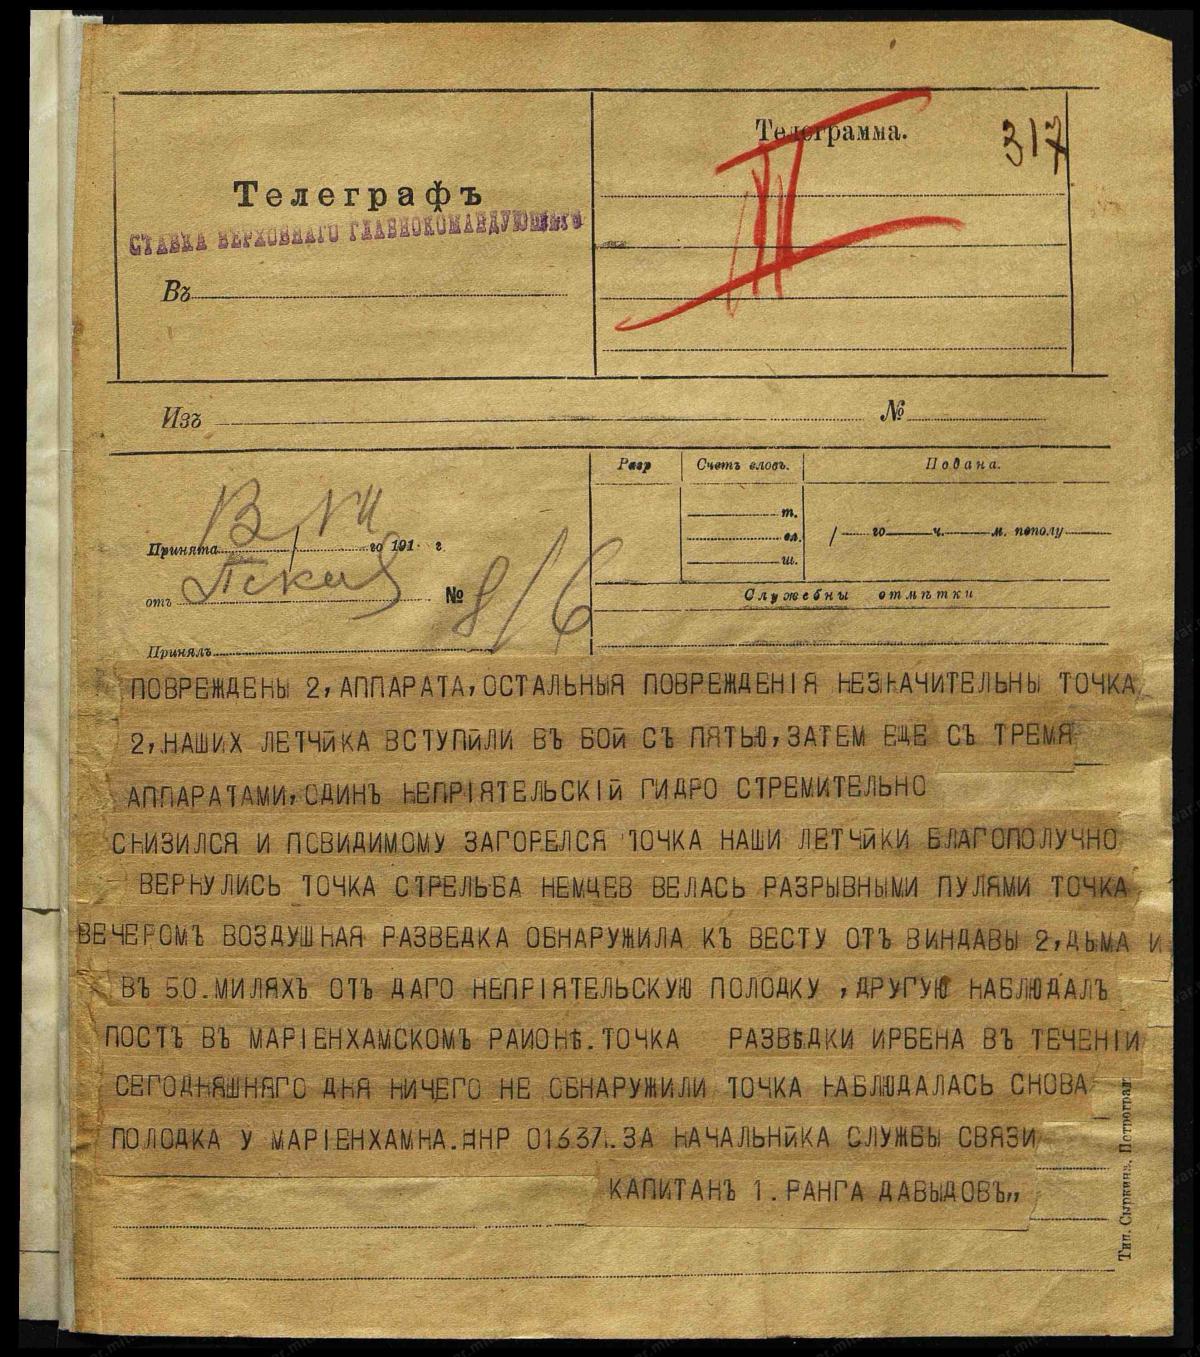 Телеграмма.
317
Телеграфъ
СТАВКА ВЕРХОВНАГО ГЛАВНОКОМАНДУЮЩАГО
Въ
III
Изъ
№
Разр
Счетъ словъ.
Подана.
т.
сл.
ш.
го ч. м. пополу
Служебны отмѣтки
Принята го 191 г.
отъ Пскова № 8/6
Принялъ
ПОВРЕЖДЕНЫ 2, АППАРАТА, ОСТАЛЬНЫЯ ПОВРЕЖДЕНІЯ НЕЗНАЧИТЕЛЬНЫ ТОЧКА
2, НАШИХ ЛЕТЧЙКА ВСТУПЙЛИ ВЪ БОЙ СЪ ПЯТЬЮ, ЗАТЕМ ЕЩЕ СЪ ТРЕМЯ
АППАРАТАМИ, ОДИНЪ НЕПРІЯТЕЛЬСКІЙ ГИДРО СТРЕМИТЕЛЬНО
СНИЗИЛСЯ И ПОВИДИМОМУ ЗАГОРЕЛСЯ ТОЧКА НАШИ ЛЕТЧЙКИ БЛАГОПОЛУЧНО
ВЕРНУЛИСЬ ТОЧКА СТРЕЛЬБА НЕМЦЕВ ВЕЛАСЬ РАЗРЫВНЫМИ ПУЛЯМИ ТОЧКА
ВЕЧЕРОМЪ ВОЗДУШНАЯ РАЗВЕДКА ОБНАРУЖИЛА КЪ ВЕСТУ ОТЪ ВИНДАВЫ 2, ДЫМА И
ВЪ 50. МИЛЯХЪ ОТЪ ДАГО НЕПРІЯТЕЛЬСКУЮ ПОЛОДКУ , ДРУГУЮ НАБЛЮДАЛЪ
ПОСТЪ ВЪ МАРІЕНХАМСКОМЪ РАЙОНѢ. ТОЧКА РАЗВѢДКИ ИРБЕНА ВЪ ТЕЧЕНІИ
СЕГОДНЯШНЯГО ДНЯ НИЧЕГО НЕ ОБНАРУЖИЛИ ТОЧКА НАБЛЮДАЛАСЬ СНОВА
ПОЛОДКА У МАРІЕНХАМНА. НР 01637. ЗА НАЧАЛЬНЙКА СЛУЖБЫ СВЯЗИ
КАПИТАНЪ 1. РАНГА ДАВЫДОВЪ,,
Тип. Сыркина, Петроград